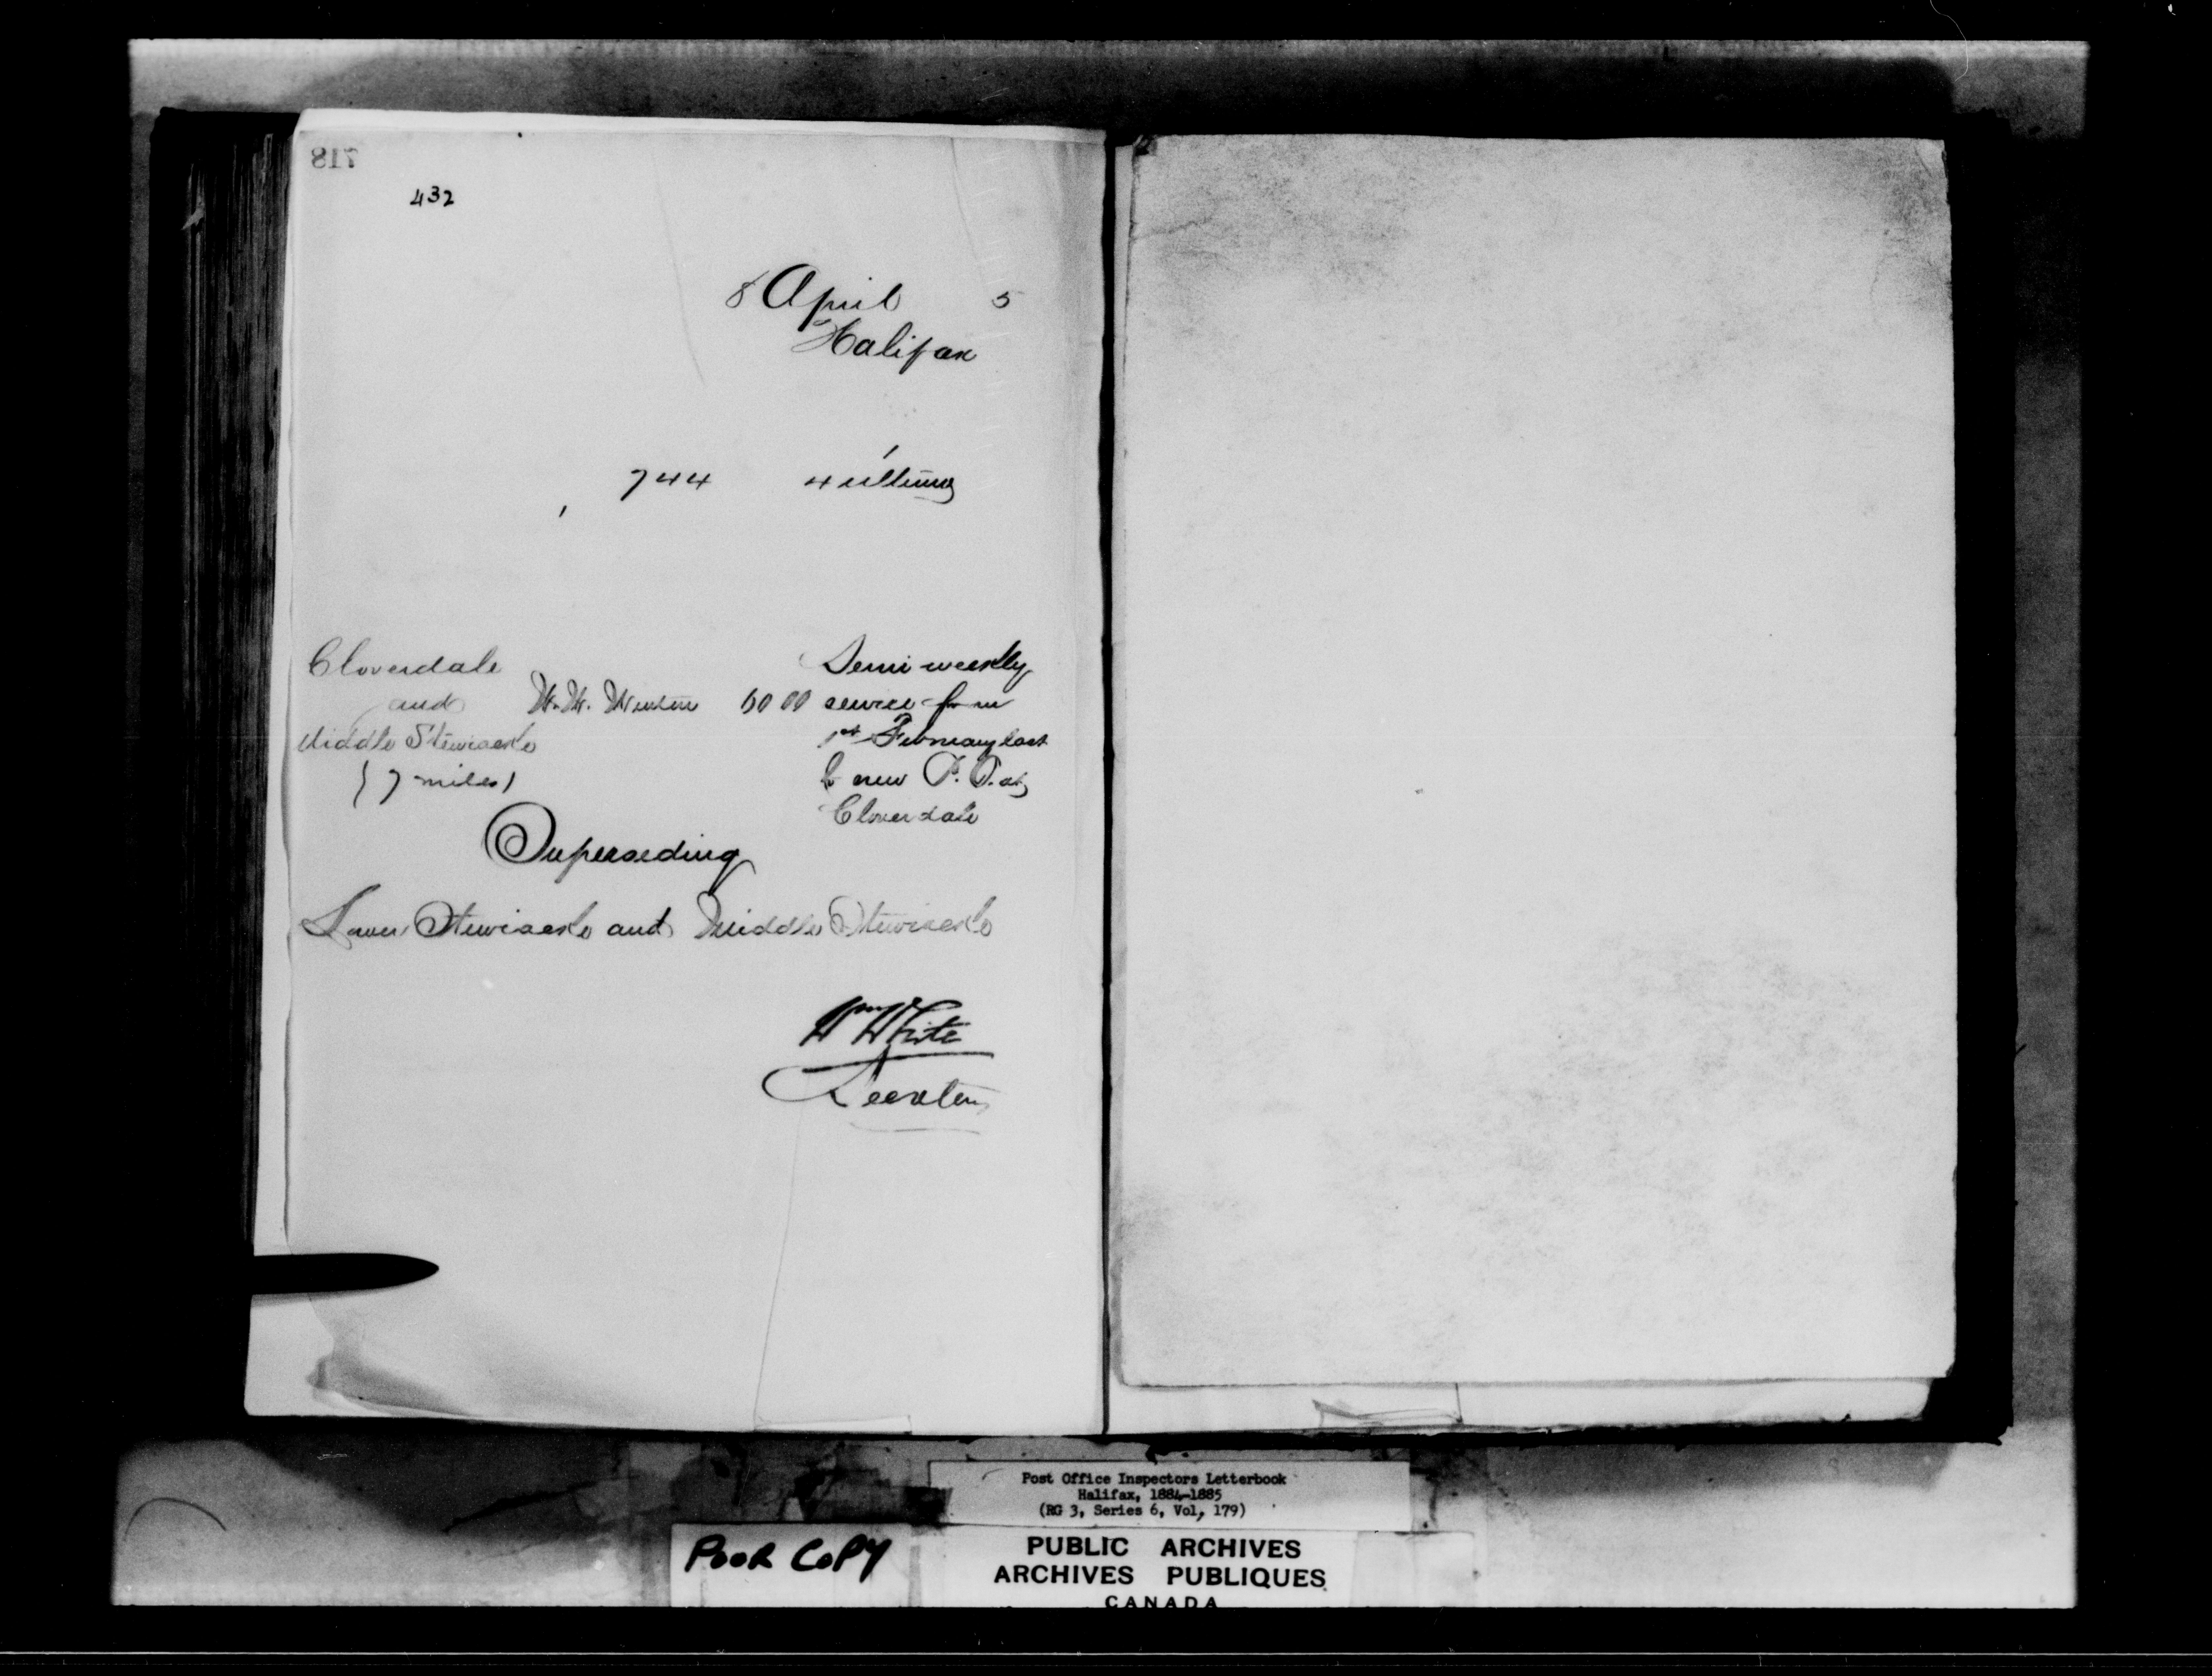 718
432
8 April 5
Halifax
744 4 ultimo
Cloverdale Semi weekly
and W. W. 60 00 service from
Middle Stewiacke 1st February last
(7 miles) to new P. O. at
Cloverdale
Superseding
Lower Stewiacke and Middle Stewiacke
Wm White
Secretary
Post Office Inspectors Letterbook
Halifax, 1884-1885
(RG 3, Series 6, Vol, 179)
POOR COPY
PUBLIC ARCHIVES
ARCHIVES PUBLIQUES
CANADA